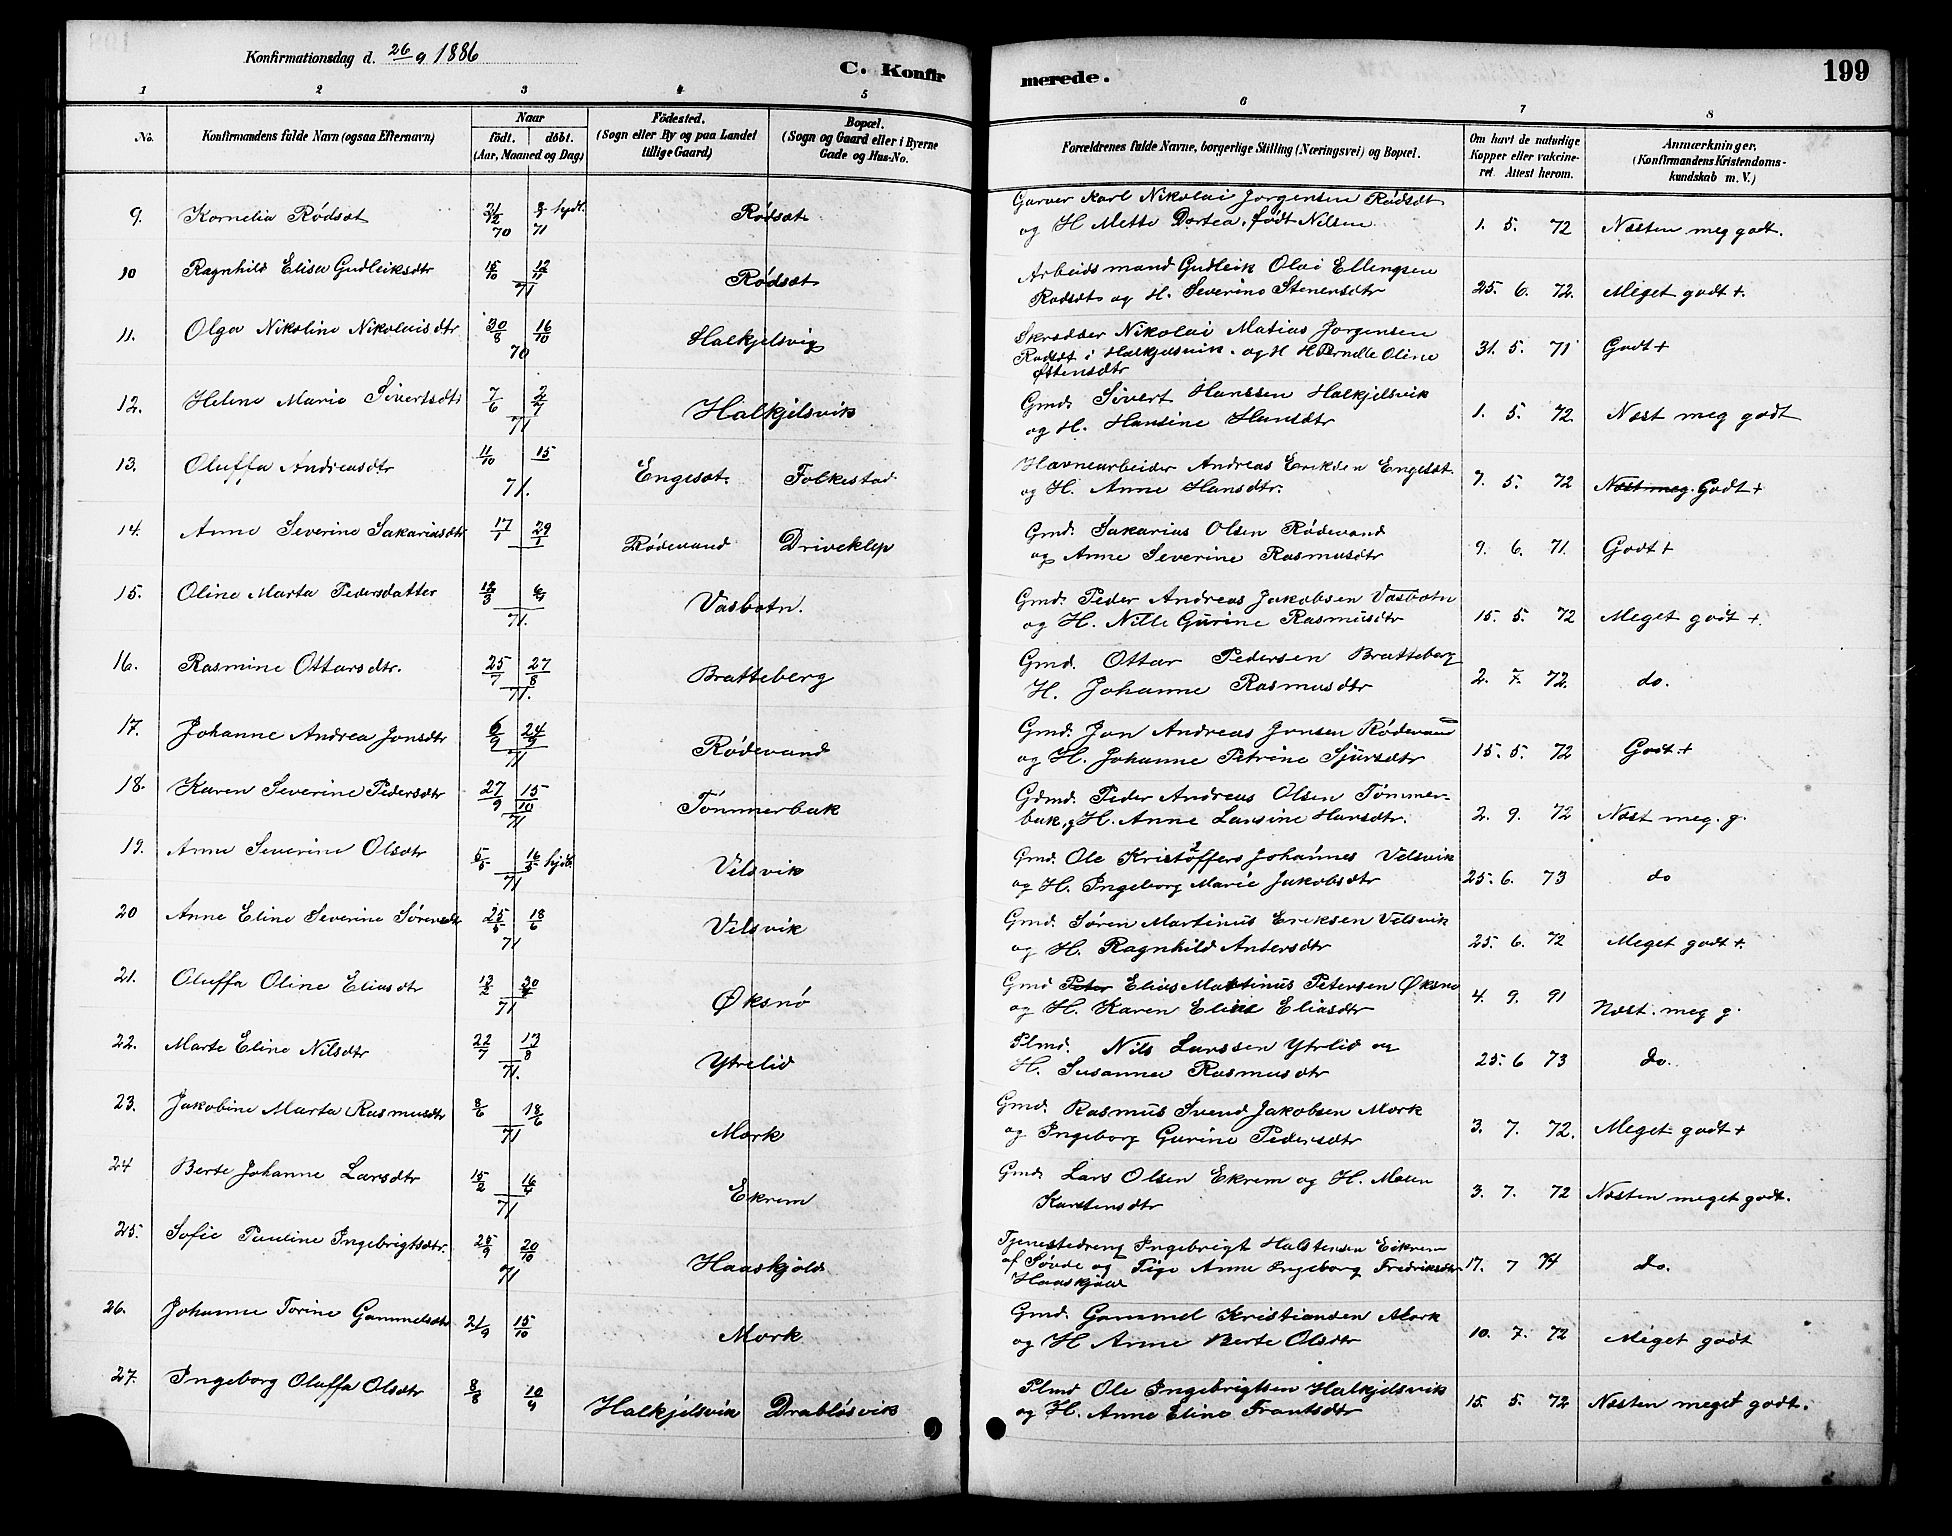 Konfirmationsdag d. 26/9 1886
C. Konfirmerede.
199
1 2 3 4 5 6 7 8
No.
Konfirmandens fulde Navn (ogsaa Efternavn)
Naar
födt. döbt.
(Aar, Maaned og Dag)
Födested.
(Sogn eller By og paa Landet
tillige Gaard)
Bopæl.
(Sogn og Gaard eller i Byerne
Gade og Hus-No.
Forældrenes fulde Navne, borgerlige Stilling (Næringsvei) og Bopæl.
Om havt de naturlige
Kopper eller vakcine-
ret. Attest herom.
Anmærkninger.
(Konfirmandens Kristendoms-
kundskab m. V.)
9. Kornelia Rødsæt 21/12 70 71 hjdt. Rødsæt Garver Karl Nikolai Jørgensen Rødsæt
og H Mette Dortea, født Nilsen 1. 5. 72 Næsten meg godt.
10 Ragnhild Elisa Gudleiksdtr 15/10 12/11 71 Rødsæt Arbeidsmand Gudleik Olai Ellengsen
Rødsæt og H. Severine Stenersdtr 25. 6. 72. Meget godt +.
11. Olga Nikoline Nikolaisdtr 30/8 16/10 70 Halkjelsvig Skrædder Nikolai Matias Jørgensen
Rødsæt i Halkjelsvik. og H Oline
Østensdtr 31. 5. 71 Godt +
12. Helene Marie Sivertsdtr 7/6 2/7 71 Halkjelsvik Gmd. Sivert Hanssen Halkjelsvik
og H. Hansine Hansdtr 1. 5. 72 Næst meg godt
13. Oluffa Andreasdtr 11/10 15 71. Engesæt. Folkestad Havnearbeider Andreas Eriksen Engesæt.
og H. Anne Hansdtr. 7. 5. 72 Næst meg. Godt +
14. Anne Severine Sakariasdtr 17/1 29/1 Rødevand Driveklep Gmd. Sakarias Olsen Rødevand
og Anne Severine Rasmusdtr 9. 6. 71. Godt +
15. Oline Marta Pedersdatter 12/3 71. Vasbotn. Gmd. Peder Andreas Jakobsen Vasbotn
og H. Nille Gurine Rasmusdtr 15. 5. 72 Meget godt +.
16. Rasmine Ottarsdtr. 25/7 27/8 71. Bratteberg Gmd. Ottar Pedersen Bratteberg
H. Johanne Rasmusdtr 2. 7. 72. do.
17. Johanne Andrea Jonsdtr 6/9 24/9 71 Rødevand Gmd. Jon Andreas Jonsen Rødevand
og H. Johanne Petrine Sjursdtr 15. 5. 72 Godt +
18. Karen Severine Pedersdtr 27/9 15/10 71 Tømmerbak Gdmd. Peder Andreas Olsen Tømmer-
bak, og H. Anne Lansine Hansdtr. 2. 9. 72 Næst meg. g.
19. Anne Severine Olsdtr 5/5 16/5 hjdt. 71 Velsvik Gmd. Ole Kristoffers Johannes Velsvik
og H. Ingeborg Marie Jakobsdtr 25. 6. 73 do
20 Anne Eline Severine Sørensdtr 25/5 18/6 71 Velsvik Gmd. Søren Martinus Eriksen Velsvik
og H. Ragnhild Andersdtr 25. 6. 72 Meget godt +.
21. Oluffa Oline Eliasdtr 13/2 71 Øksnø Gmd Peter Elias Martinus Petersen Øksnø
og H. Karen Eline Eliasdtr 4. 9. 91 Næst. meg g.
22. Marte Eline Nilsdtr 22/7 13/8 71. Ytrelid Plmd. Nils Larssen Ytrlid og
H. Susanne Rasmusdtr 25. 6 73 do.
23. Jakobine Marta Rasmusdtr 8/6 18/6 71 Mork Gmd. Rasmus Svend Jakobsen Mork
og Ingeborg Gurine Pedersdtr 3. 7. 72. Meget godt +
24 Berte Johanne Larsdtr 15/2 16/4 71 Ekrem Gmd. Lars Olsen Ekrem og H. Maren
Karstensdtr 3. 7. 72 Næsten meget godt.
25. Sofie Pauline Ingebrigtsdtr. 25/9 20/10 71 Haaskjold Tjenestedreng Ingebrigt Halstensen Eikrem
af Søvde og Pige Anne Ingeborg Fredriksdtr
Haaskjold 17. 7 74 do.
26. Johanne Torine Gammelsdtr 21/9 15/10 Mork Gmd. Gammel Kristiansen Mork
og H Anne Berte Olsdtr 10. 7. 72 Meget godt
27. Ingeborg Oluffa Olsdtr 8/8 10/9 Halkjelsvik Drabløsvik Plmd Ole Ingebrigtsen Halkjelsvik
og H. Anne Eline Frantsdtr 15. 5. 72 Næsten meget godt.